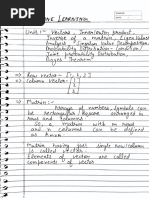 MACHINE LEARNING
Unit 1st Vectors, Inner/outer product,
Inverse of a matrix, Eigen Value
Analysis, Singular Value Decomposition,
Probability Distribution - Condition/
Joint probability Distribution
Bayes Theorem
=> Row vector = [1, 2, 3]
=> Column vector = [1
2
3]
=> Matrix :-
Array of numbers, symbols can
be rectangular/square arranged in
rows and Columns
So, a matrix with m rows
and n columns
Matrix having just single row/column
is called vector.
Elements of vector are called
components of vector